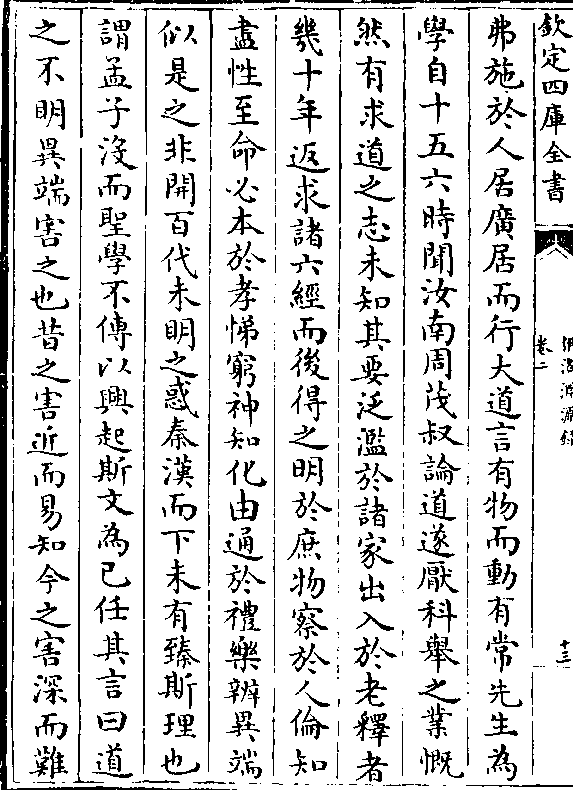 欽定四庫全書
伊洛淵源錄
卷二
十三
弗施於人居廣居而行大道言有物而動有常先生為
學自十五六時聞汝南周茂叔論道遂厭科舉之業慨
然有求道之志未知其要泛濫於諸家出入於老釋者
幾十年返求諸六經而後得之明於庶物察於人倫知
盡性至命必本於孝悌窮神知化由通於禮樂辨異端
似是之非開百代未明之惑秦漢而下未有臻斯理也
謂孟子沒而聖學不傳以興起斯文為己任其言曰道
之不明異端害之也昔之害近而易知今之害深而難